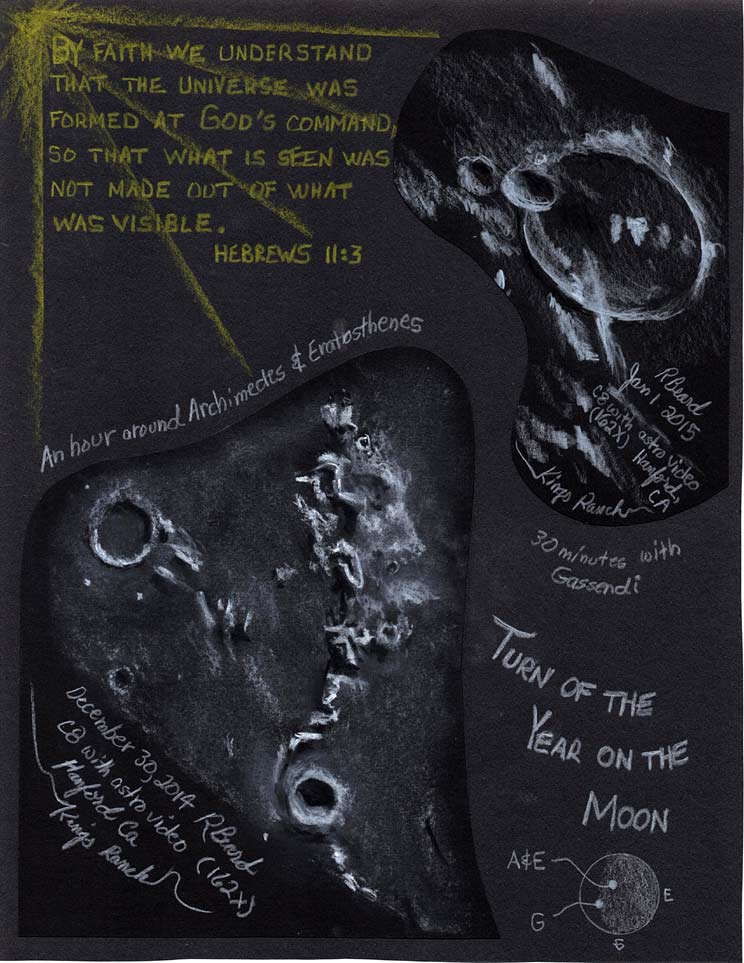 BY FAITH WE UNDERSTAND
THAT THE UNIVERSE WAS
FORMED AT GOD'S COMMAND,
SO THAT WHAT IS SEEN WAS
NOT MADE OUT OF WHAT
WAS VISIBLE.
HEBREWS 11:3
RBeard
Jan 1 2015
C8 with astro video
(162X) Hanford,
CA
Kings Ranch
30 minutes with
Gassendi
An hour around Archimedes & Eratosthenes
December 30, 2014 RBeard
C8 with astro video (162X)
Hanford Ca
Kings Ranch
TURN OF THE
YEAR ON THE
MOON
A&E
E
G
S